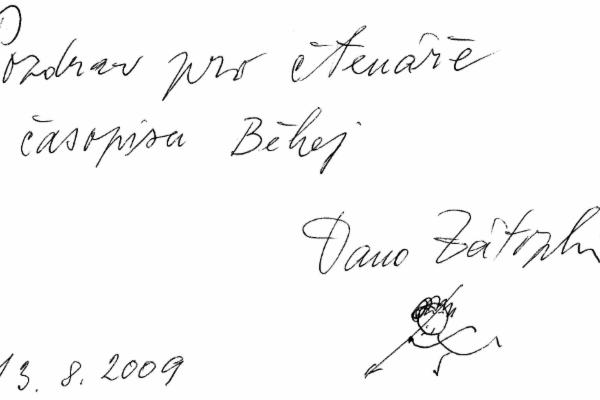 Pozdrav pro čtenáře
časopisu Běhej
Dana Zátopk
13. 8. 2009